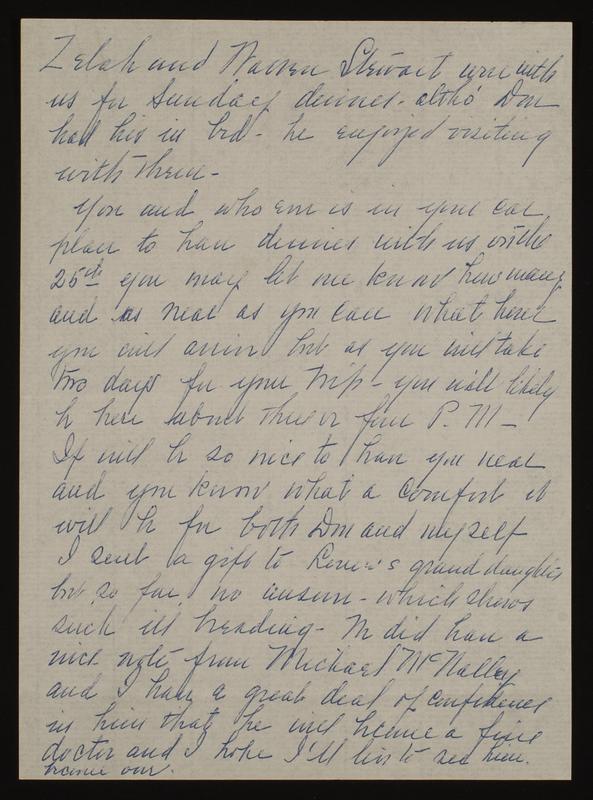 Zelah and Warren Stewart were with
us for Sunday dinner - altho' Don
had his in bed - he enjoyed visiting
with them -
You and who ever is in your car
plan to have dinner with us on the
25th you may let me know how many
and as near as you can what hour
you will arrive but as you will take
two days for your trip - you will likely
be here about three or four P.M -
It will be so nice to have you near
and you know what a comfort it
will be for both Don and myself
I sent a gift to grand daughter
but so far no answer - which shows
such ill breeding - We did have a
nice note from Michael McNalley
and I have a great deal of confidence
in him that he will become a fine
doctor and I hope I'll live to see him
become one.